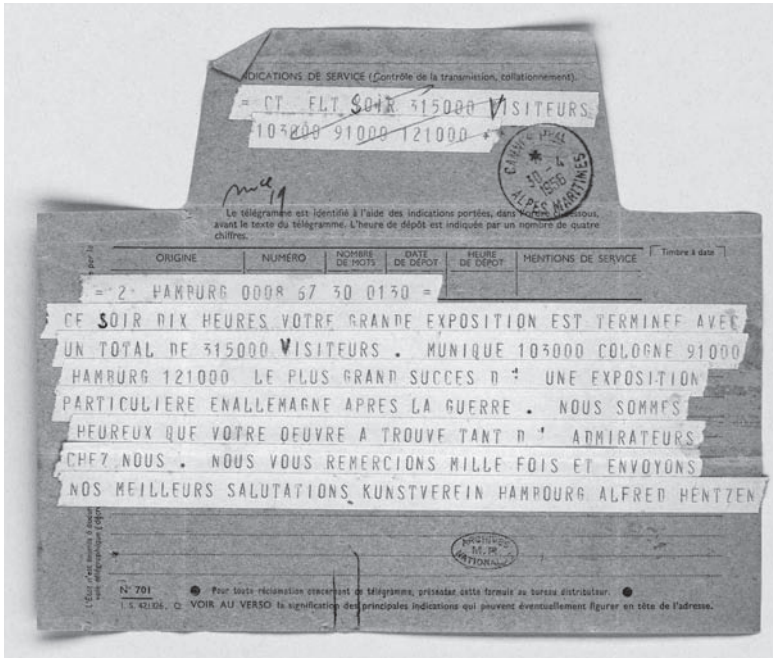 INDICATIONS DE SERVICE (Contrôle de la transmission, collationnement).
= CT ELT SOIR 315000 VISITEURS
103000 91000 121000 +
CANNES
30-4
1956
ALPES MARITIMES
19
Le télégramme est identifié à l'aide des indications portées, dans l'ordre ci-dessous,
avant le texte du télégramme. L'heure de dépôt est indiquée par un nombre de quatre
chiffres.
ORIGINE NUMÉRO NOMBRE DE MOTS DATE DE DÉPÔT HEURE DE DÉPÔT MENTIONS DE SERVICE Timbre à date
= 2 HAMBURG 0008 67 30 0130 =
CE SOIR DIX HEURES VOTRE GRANDE EXPOSITION EST TERMINEE AVEC
UN TOTAL DE 315000 VISITEURS . MUNIQUE 103000 COLOGNE 91000
HAMBURG 121000 LE PLUS GRAND SUCCES D ' UNE EXPOSITION
PARTICULIERE ENALLEMAGNE APRES LA GUERRE . NOUS SOMMES
HEUREUX QUE VOTRE OEUVRE A TROUVE TANT D ' ADMIRATEURS
CHEZ NOUS . NOUS VOUS REMERCIONS MILLE FOIS ET ENVOYONS
NOS MEILLEURS SALUTATIONS KUNSTVEREIN HAMBOURG ALFRED HENTZEN
ARCHIVES
NATIONALES
N° 701 Pour toute réclamation concernant ce télégramme, présenter cette formule au bureau distributeur.
VOIR AU VERSO la signification des principales indications qui peuvent éventuellement figurer en tête de l'adresse.